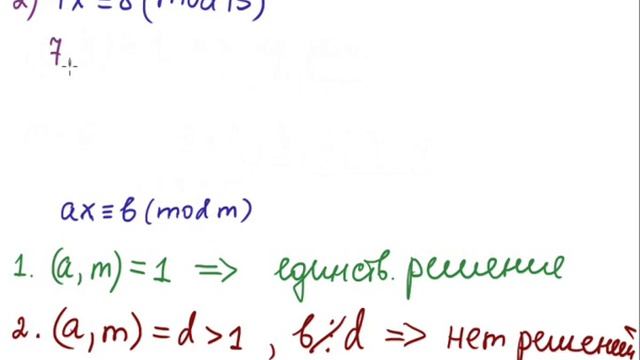 2) x ≡ (mod
7
ax ≡ b (mod m)
1. (a, m) = 1 => единств. решение
2. (a, m) = d > 1 , b ⋮̸ d => нет решений